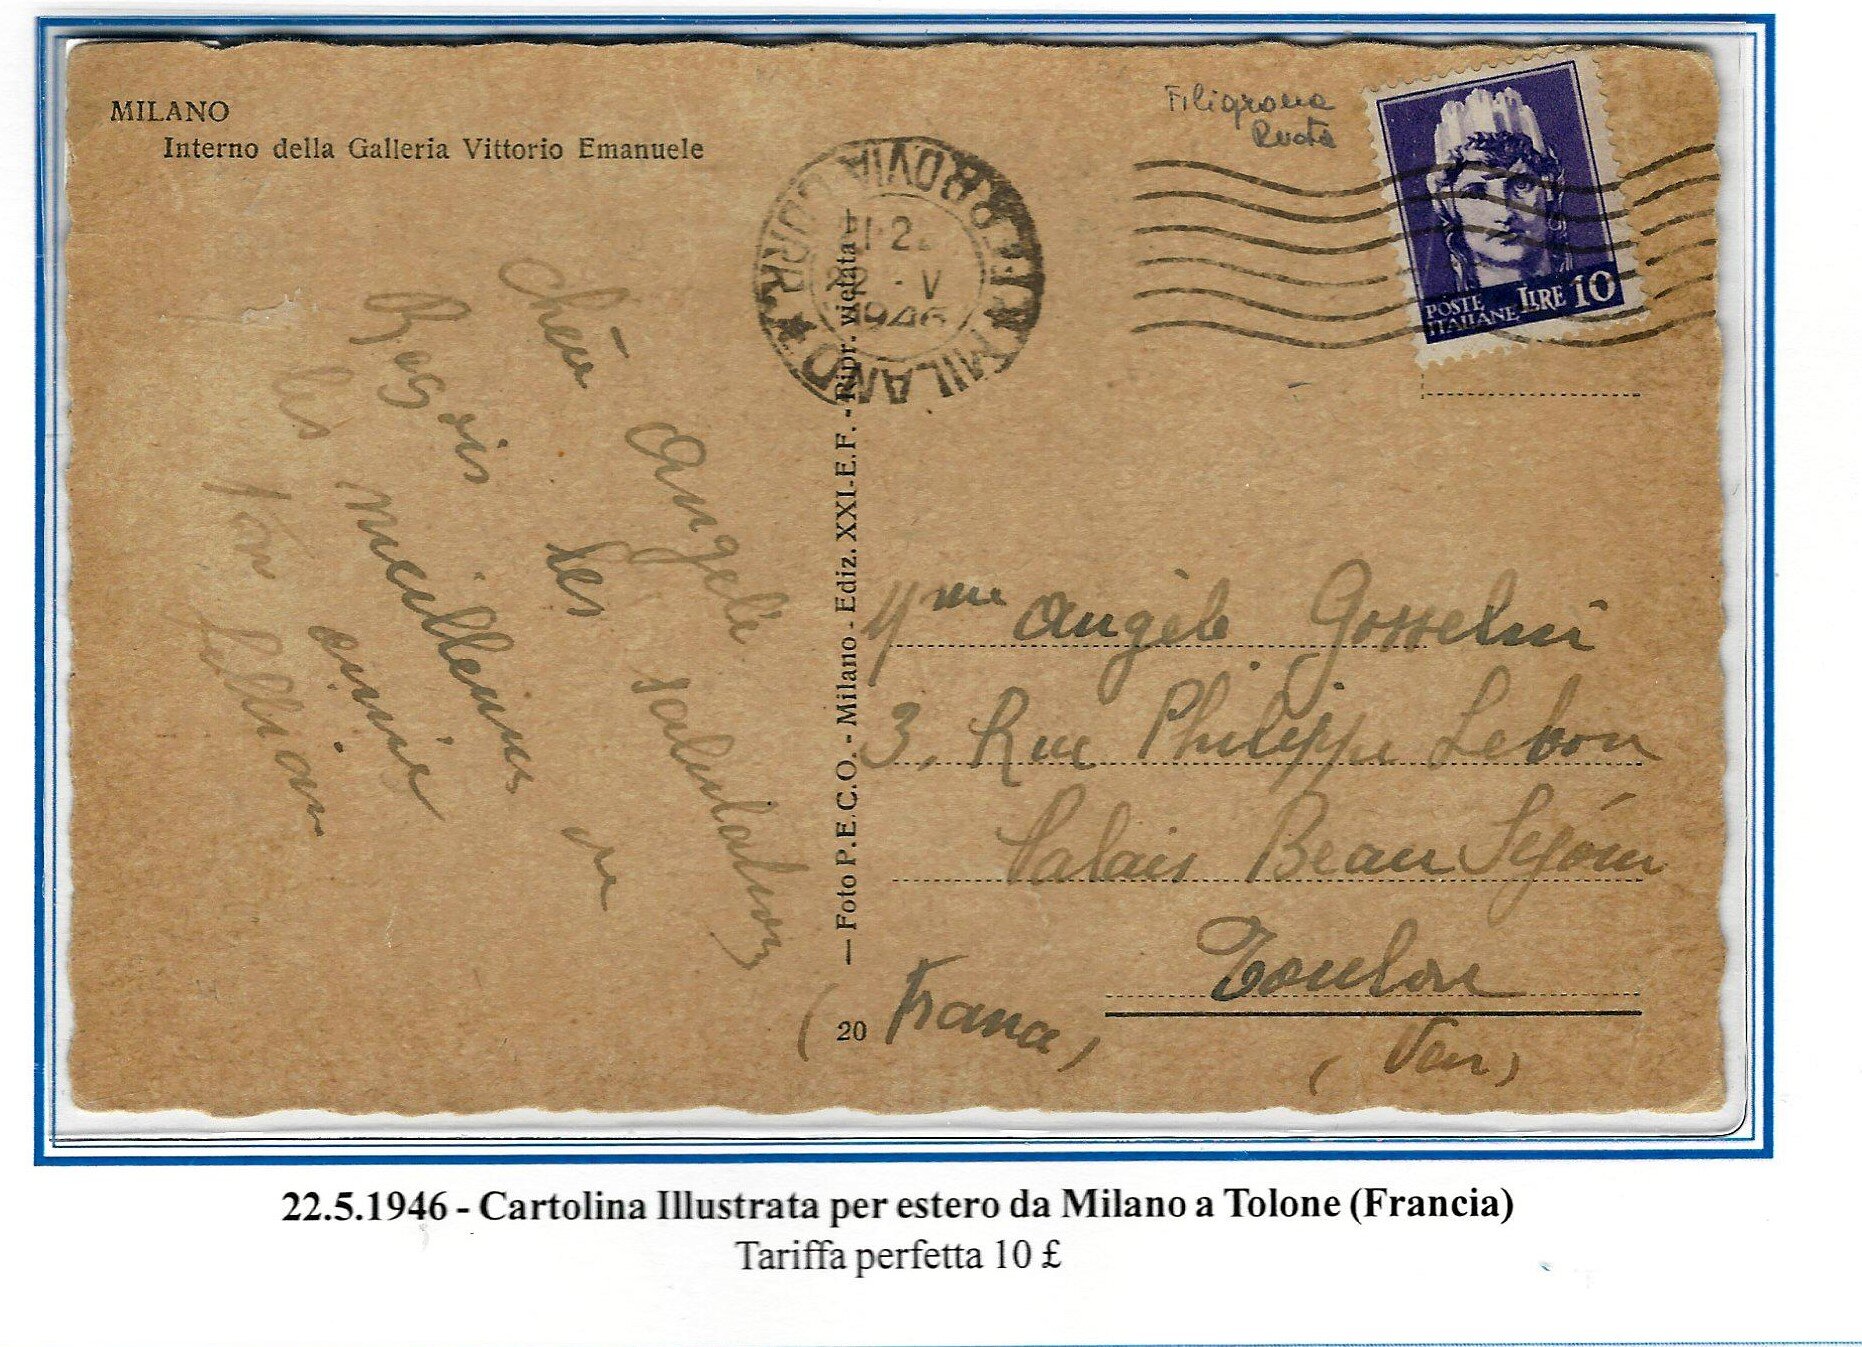 MILANO
Interno della Galleria Vittorio Emanuele
Filigrana
Ruota
MILANO FERROVIA CORR.
11-22
22 - V
1946
POSTE
ITALIANE LIRE 10
— Foto P.E.C.O. - Milano - Ediz. XXI-E.F. - Ripr. vietata
Angèle
Reçois les salutations
les meilleures
amie
Mme Angèle Gosselini
3, Rue Philippe Lebon
Palais Beau Séjour
Toulon
20
(France)
(Var)
22.5.1946 - Cartolina Illustrata per estero da Milano a Tolone (Francia)
Tariffa perfetta 10 £